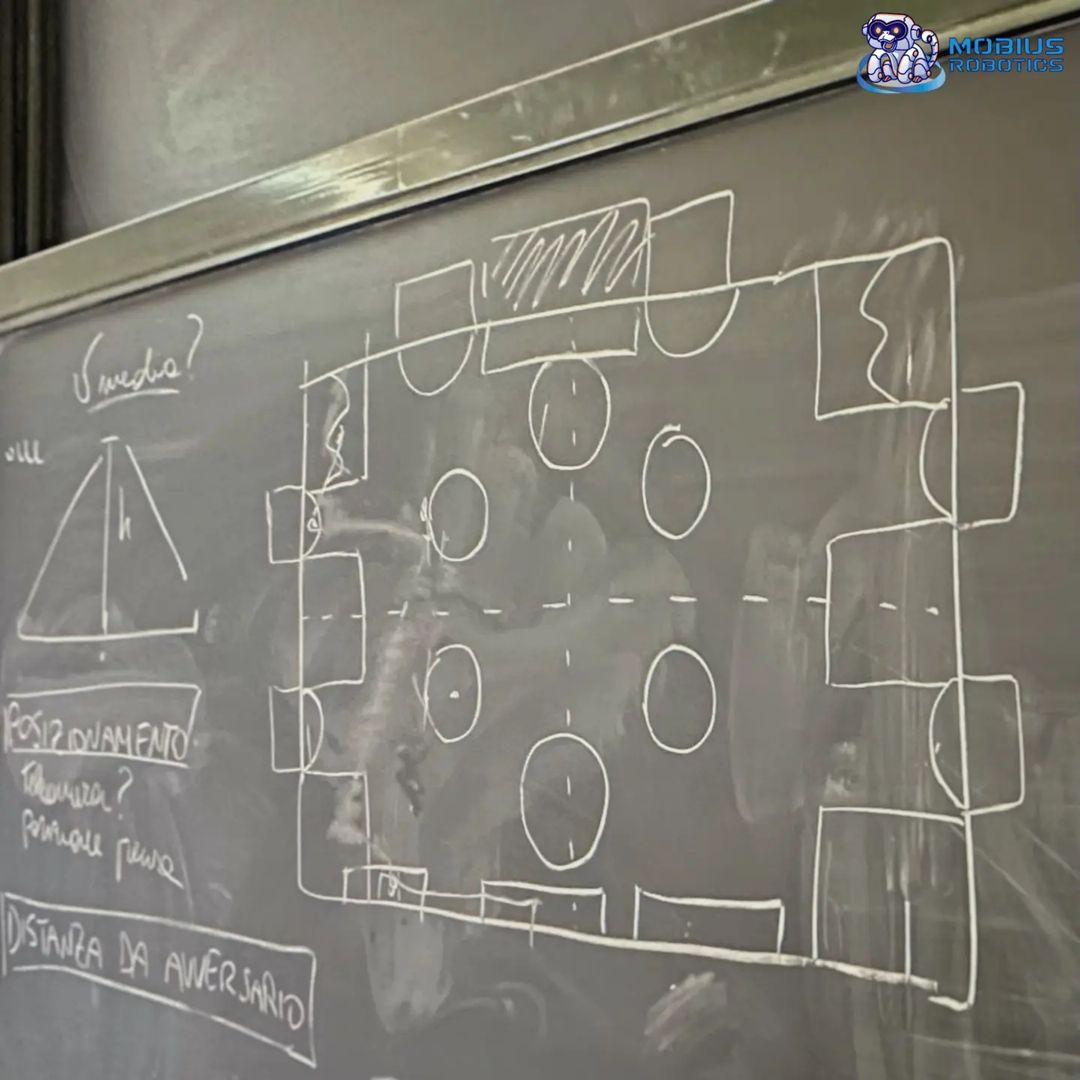 MOBIUS
ROBOTICS
media?
h
POSIZIONAMENTO
Telecamera?
DISTANZA DA AVVERSARIO